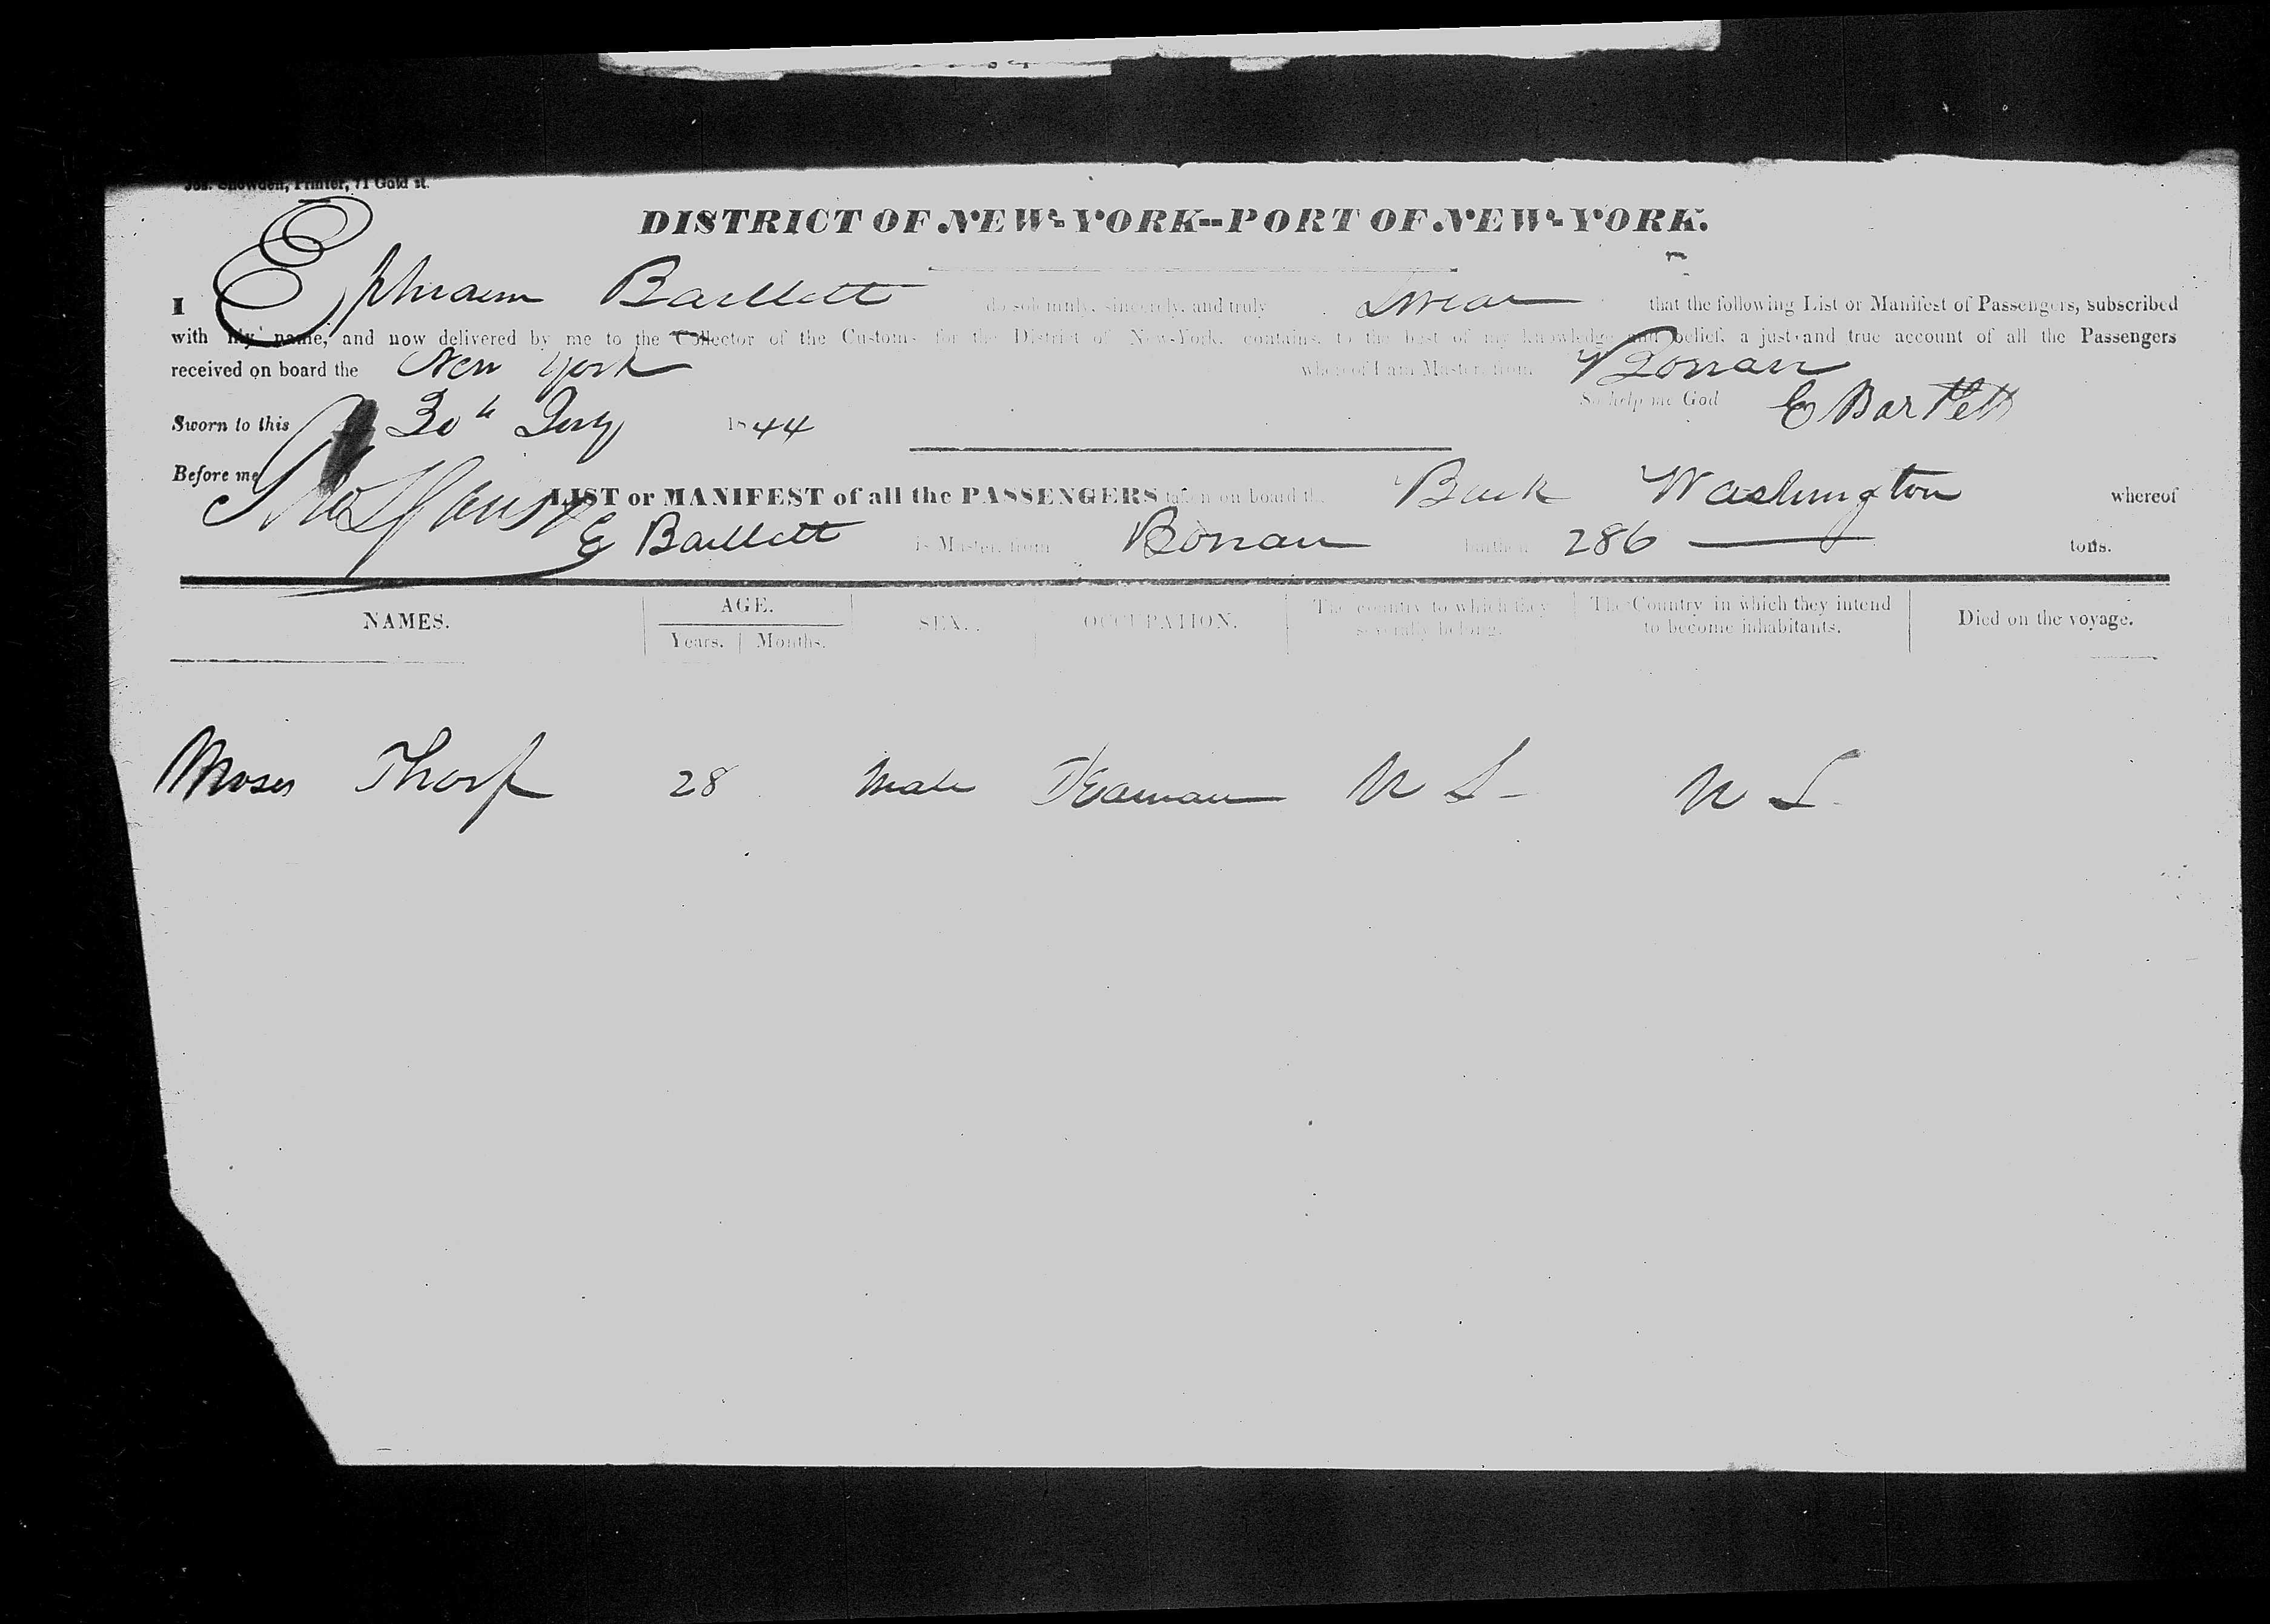 Jos. Snowden, Printer, 71 Gold st.
DISTRICT OF NEW-YORK--PORT OF NEW-YORK.
I Ephraim Bartlett do solemnly, sincerely, and truly Swear that the following List or Manifest of Passengers, subscribed
with my name, and now delivered by me to the Collector of the Customs for the District of New-York, contains, to the best of my knowledge and belief, a just and true account of all the Passengers
received on board the New York whereof I am Master, from Bonair
So help me God E Bartlett
Sworn to this 30th 1844
Before me
LIST or MANIFEST of all the PASSENGERS taken on board the Bark Washington whereof
E Bartlett is Master, from Bonair burthen 286 tons.
NAMES. AGE. SEX. OCCUPATION. The country to which they severally belong. The Country in which they intend to become inhabitants. Died on the voyage.
Years. Months.
Moses Thorp 28 Male Seaman U S - U S